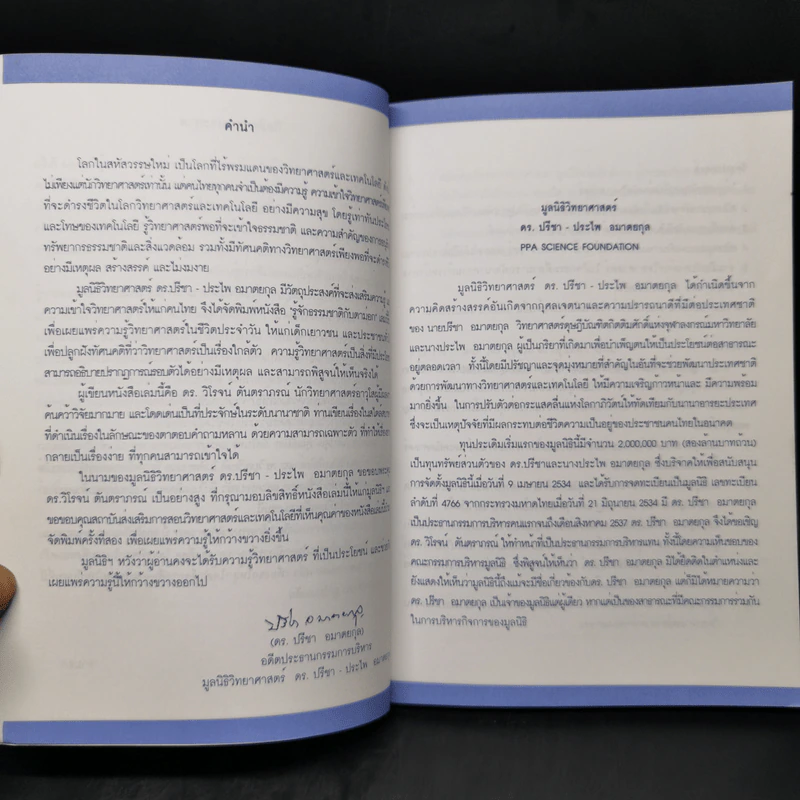 คำนำ
โลกในสหัสวรรษใหม่ เป็นโลกที่ไร้พรมแดนของวิทยาศาสตร์และเทคโนโลยี
ไม่เพียงแต่นักวิทยาศาสตร์เท่านั้น แต่คนไทยทุกคนจำเป็นต้องมีความรู้ ความเข้าใจวิทยาศาสตร์
ที่จะดำรงชีวิตในโลกวิทยาศาสตร์และเทคโนโลยี อย่างมีความสุข โดยรู้เท่าทันประโยชน์
และโทษของเทคโนโลยี รู้วิทยาศาสตร์พอที่จะเข้าใจธรรมชาติ และความสำคัญของการอนุรักษ์
ทรัพยากรธรรมชาติและสิ่งแวดล้อม รวมทั้งมีทัศนคติทางวิทยาศาสตร์เพียงพอที่จะดำรงชีวิต
อย่างมีเหตุผล สร้างสรรค์ และไม่งมงาย
มูลนิธิวิทยาศาสตร์ ดร.ปรีชา - ประไพ อมาตยกุล มีวัตถุประสงค์ที่จะส่งเสริมความรู้
ความเข้าใจวิทยาศาสตร์ให้แก่คนไทย จึงได้จัดพิมพ์หนังสือ "รู้จักธรรมชาติกับตามอก"
เพื่อเผยแพร่ความรู้วิทยาศาสตร์ในชีวิตประจำวัน ให้แก่เด็กเยาวชน และประชาชน
เพื่อปลูกฝังทัศนคติที่ว่าวิทยาศาสตร์เป็นเรื่องใกล้ตัว ความรู้วิทยาศาสตร์เป็นสิ่งที่มีประโยชน์
สามารถอธิบายปรากฏการณ์รอบตัวได้อย่างมีเหตุผล และสามารถพิสูจน์ให้เห็นจริงได้
ผู้เขียนหนังสือเล่มนี้คือ ดร. วิโรจน์ ตันตราภรณ์ นักวิทยาศาสตร์อาวุโส
ค้นคว้าวิจัยมากมาย และโดดเด่นเป็นที่ประจักษ์ในระดับนานาชาติ ท่านเขียนเรื่องในสไตล์
ที่ดำเนินเรื่องในลักษณะของตาตอบคำถามหลาน ด้วยความสามารถเฉพาะตัว ที่ทำให้
กลายเป็นเรื่องง่าย ที่ทุกคนสามารถเข้าใจได้
ในนามของมูลนิธิวิทยาศาสตร์ ดร.ปรีชา - ประไพ อมาตยกุล ขอขอบพระคุณ
ดร.วิโรจน์ ตันตราภรณ์ เป็นอย่างสูง ที่กรุณามอบลิขสิทธิ์หนังสือเล่มนี้ให้แก่มูลนิธิฯ และ
ขอขอบคุณสถาบันส่งเสริมการสอนวิทยาศาสตร์และเทคโนโลยีที่เห็นคุณค่าของหนังสือและ
จัดพิมพ์ครั้งที่สอง เพื่อเผยแพร่ความรู้ให้กว้างขวางยิ่งขึ้น
มูลนิธิฯ หวังว่าผู้อ่านคงจะได้รับความรู้วิทยาศาสตร์ ที่เป็นประโยชน์ และช่วย
เผยแพร่ความรู้นี้ให้กว้างขวางออกไป
ปรีชา อมาตยกุล
(ดร. ปรีชา อมาตยกุล)
อดีตประธานกรรมการบริหาร
มูลนิธิวิทยาศาสตร์ ดร. ปรีชา - ประไพ
มูลนิธิวิทยาศาสตร์
ดร. ปรีชา - ประไพ อมาตยกุล
PPA SCIENCE FOUNDATION
มูลนิธิวิทยาศาสตร์ ดร. ปรีชา - ประไพ อมาตยกุล ได้กำเนิดขึ้นจาก
ความคิดสร้างสรรค์อันเกิดจากกุศลเจตนาและความปรารถนาดีที่มีต่อประเทศชาติ
ของ นายปรีชา อมาตยกุล วิทยาศาสตร์ดุษฎีบัณฑิตกิตติมศักดิ์แห่งจุฬาลงกรณ์มหาวิทยาลัย
และนางประไพ อมาตยกุล ผู้เป็นภริยาที่เกิดมาเพื่อบำเพ็ญตนให้เป็นประโยชน์ต่อสาธารณะ
อยู่ตลอดเวลา ทั้งนี้โดยมีปรัชญาและจุดมุ่งหมายที่สำคัญในอันที่จะช่วยพัฒนาประเทศชาติ
ด้วยการพัฒนาทางวิทยาศาสตร์และเทคโนโลยี ให้มีความเจริญก้าวหน้าและ มีความพร้อม
มากยิ่งขึ้น ในการปรับตัวต่อกระแสคลื่นแห่งโลกาภิวัตน์ให้ทัดเทียมกับนานาอารยะประเทศ
ซึ่งจะเป็นเหตุปัจจัยที่มีผลกระทบต่อชีวิตความเป็นอยู่ของประชาชนคนไทยในอนาคต
ทุนประเดิมเริ่มแรกของมูลนิธินี้มีจำนวน 2,000,000 บาท (สองล้านบาทถ้วน)
เป็นทุนทรัพย์ส่วนตัวของ ดร.ปรีชาและนางประไพ อมาตยกุล ซึ่งบริจาคให้เพื่อสนับสนุน
การจัดตั้งมูลนิธินี้เมื่อวันที่ 9 เมษายน 2534 และได้รับการจดทะเบียนเป็นมูลนิธิ เลขทะเบียน
ลำดับที่ 4766 จากกระทรวงมหาดไทยเมื่อวันที่ 21 มิถุนายน 2534 มี ดร. ปรีชา อมาตยกุล
เป็นประธานกรรมการบริหารคนแรกจนถึงเดือนสิงหาคม 2537 ดร. ปรีชา อมาตยกุล จึงได้ขอเชิญ
ดร. วิโรจน์ ตันตราภรณ์ ให้ทำหน้าที่เป็นประธานกรรมการบริหารแทน ทั้งนี้โดยความเห็นชอบของ
คณะกรรมการบริหารมูลนิธิ ซึ่งพิสูจน์ให้เห็นว่า ดร. ปรีชา อมาตยกุล มิได้ยึดติดในตำแหน่งและ
ยังแสดงให้เห็นว่ามูลนิธินี้ถึงแม้จะมีชื่อเกี่ยวของกับดร. ปรีชา อมาตยกุล แต่ก็มิได้หมายความว่า
ดร. ปรีชา อมาตยกุล เป็นเจ้าของมูลนิธิแต่ผู้เดียว หากแต่เป็นของสาธารณะที่มีคณะกรรมการร่วมกัน
ในการบริหารกิจการของมูลนิธิ